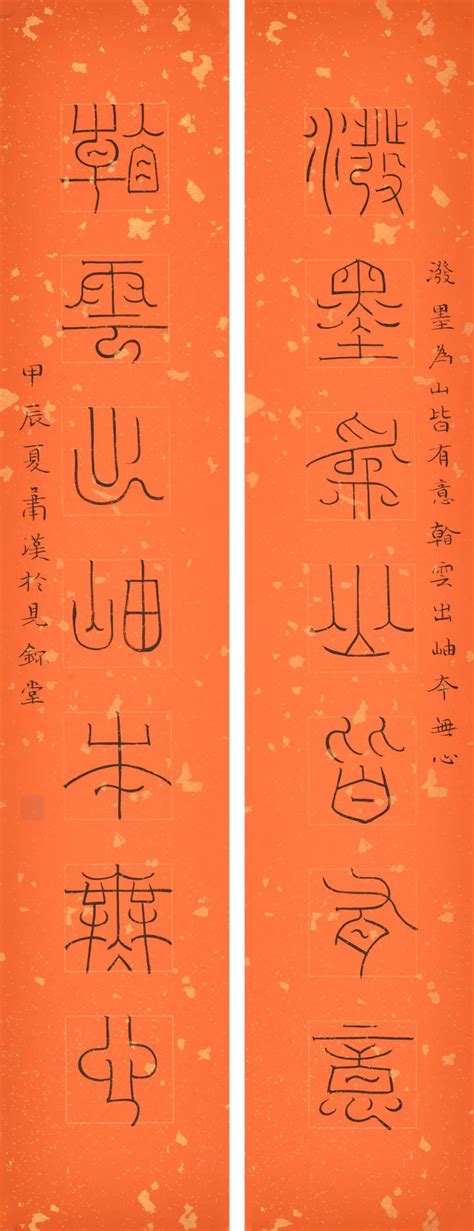 潑墨為山皆有意翰雲出岫本無心
潑墨為山皆有意
翰雲出岫本無心
甲辰夏肅漢於見鉨堂